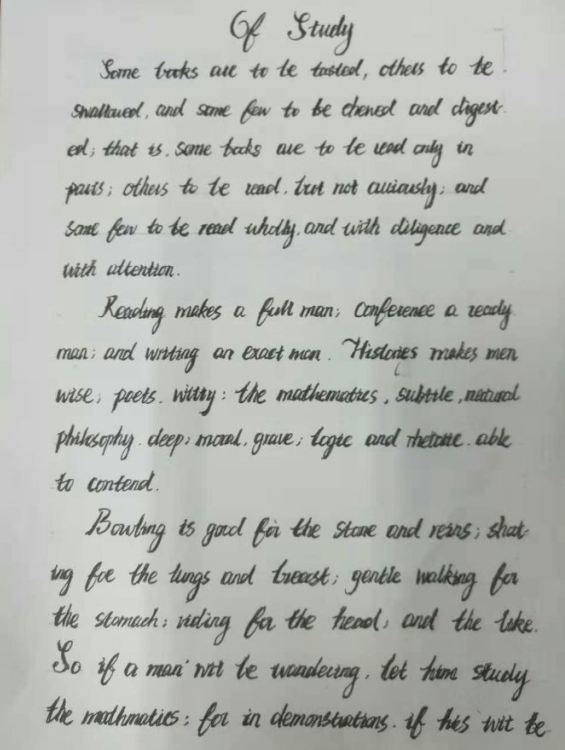 Of Study
Some books are to be tasted, others to be
swallowed, and some few to be chewed and digest
ed; that is, some books are to be read only in
parts; others to be read, but not curiously; and
some few to be read wholly, and with diligence and
with attention.
Reading makes a full man; conference a ready
man; and writing an exact man. Histories makes men
wise; poets, witty; the mathematics, subtile, natural
philosophy, deep; moral, grave; logic and rhetoric, able
to contend.
Bowling is good for the stone and reins; shot-
ing for the lungs and breast; gentle walking for
the stomach; riding for the head; and the like.
So if a man' wit be wandering, let him study
the mathmatics; for in demonstrations, if his wit be